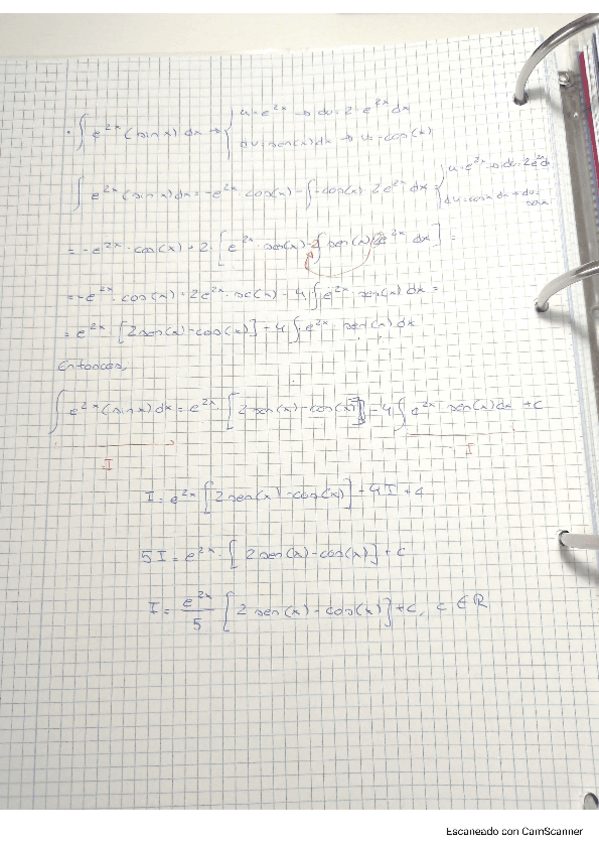 · ∫ e^2x (sin x) dx → { u = e^2x → du = 2·e^2x dx
dv = sen(x) dx → v = -cos(x)
∫ e^2x (sin x) dx = -e^2x cos(x) - ∫ -cos(x) 2e^2x dx = { u = e^2x → du = 2e^2x dx
dv = cosx dx → v = senx
= -e^2x · cos(x) + 2 · [ e^2x · sen(x) - 2∫ sen(x) e^2x dx ] =
= -e^2x · cos(x) + 2e^2x · sen(x) - 4∫ e^2x · sen(x) dx =
= e^2x · [2sen(x) - cos(x)] - 4∫ e^2x · sen(x) dx
Entonces,
∫ e^2x (sin x) dx = e^2x [2 sen(x) - cos(x)] - 4∫ e^2x · sen(x) dx + C
I I
I = e^2x [2 sen(x) - cos(x)] - 4I + C
5I = e^2x · [2 sen(x) - cos(x)] + C
I = e^2x / 5 [2 sen(x) - cos(x)] + C, C ∈ ℝ
Escaneado con CamScanner